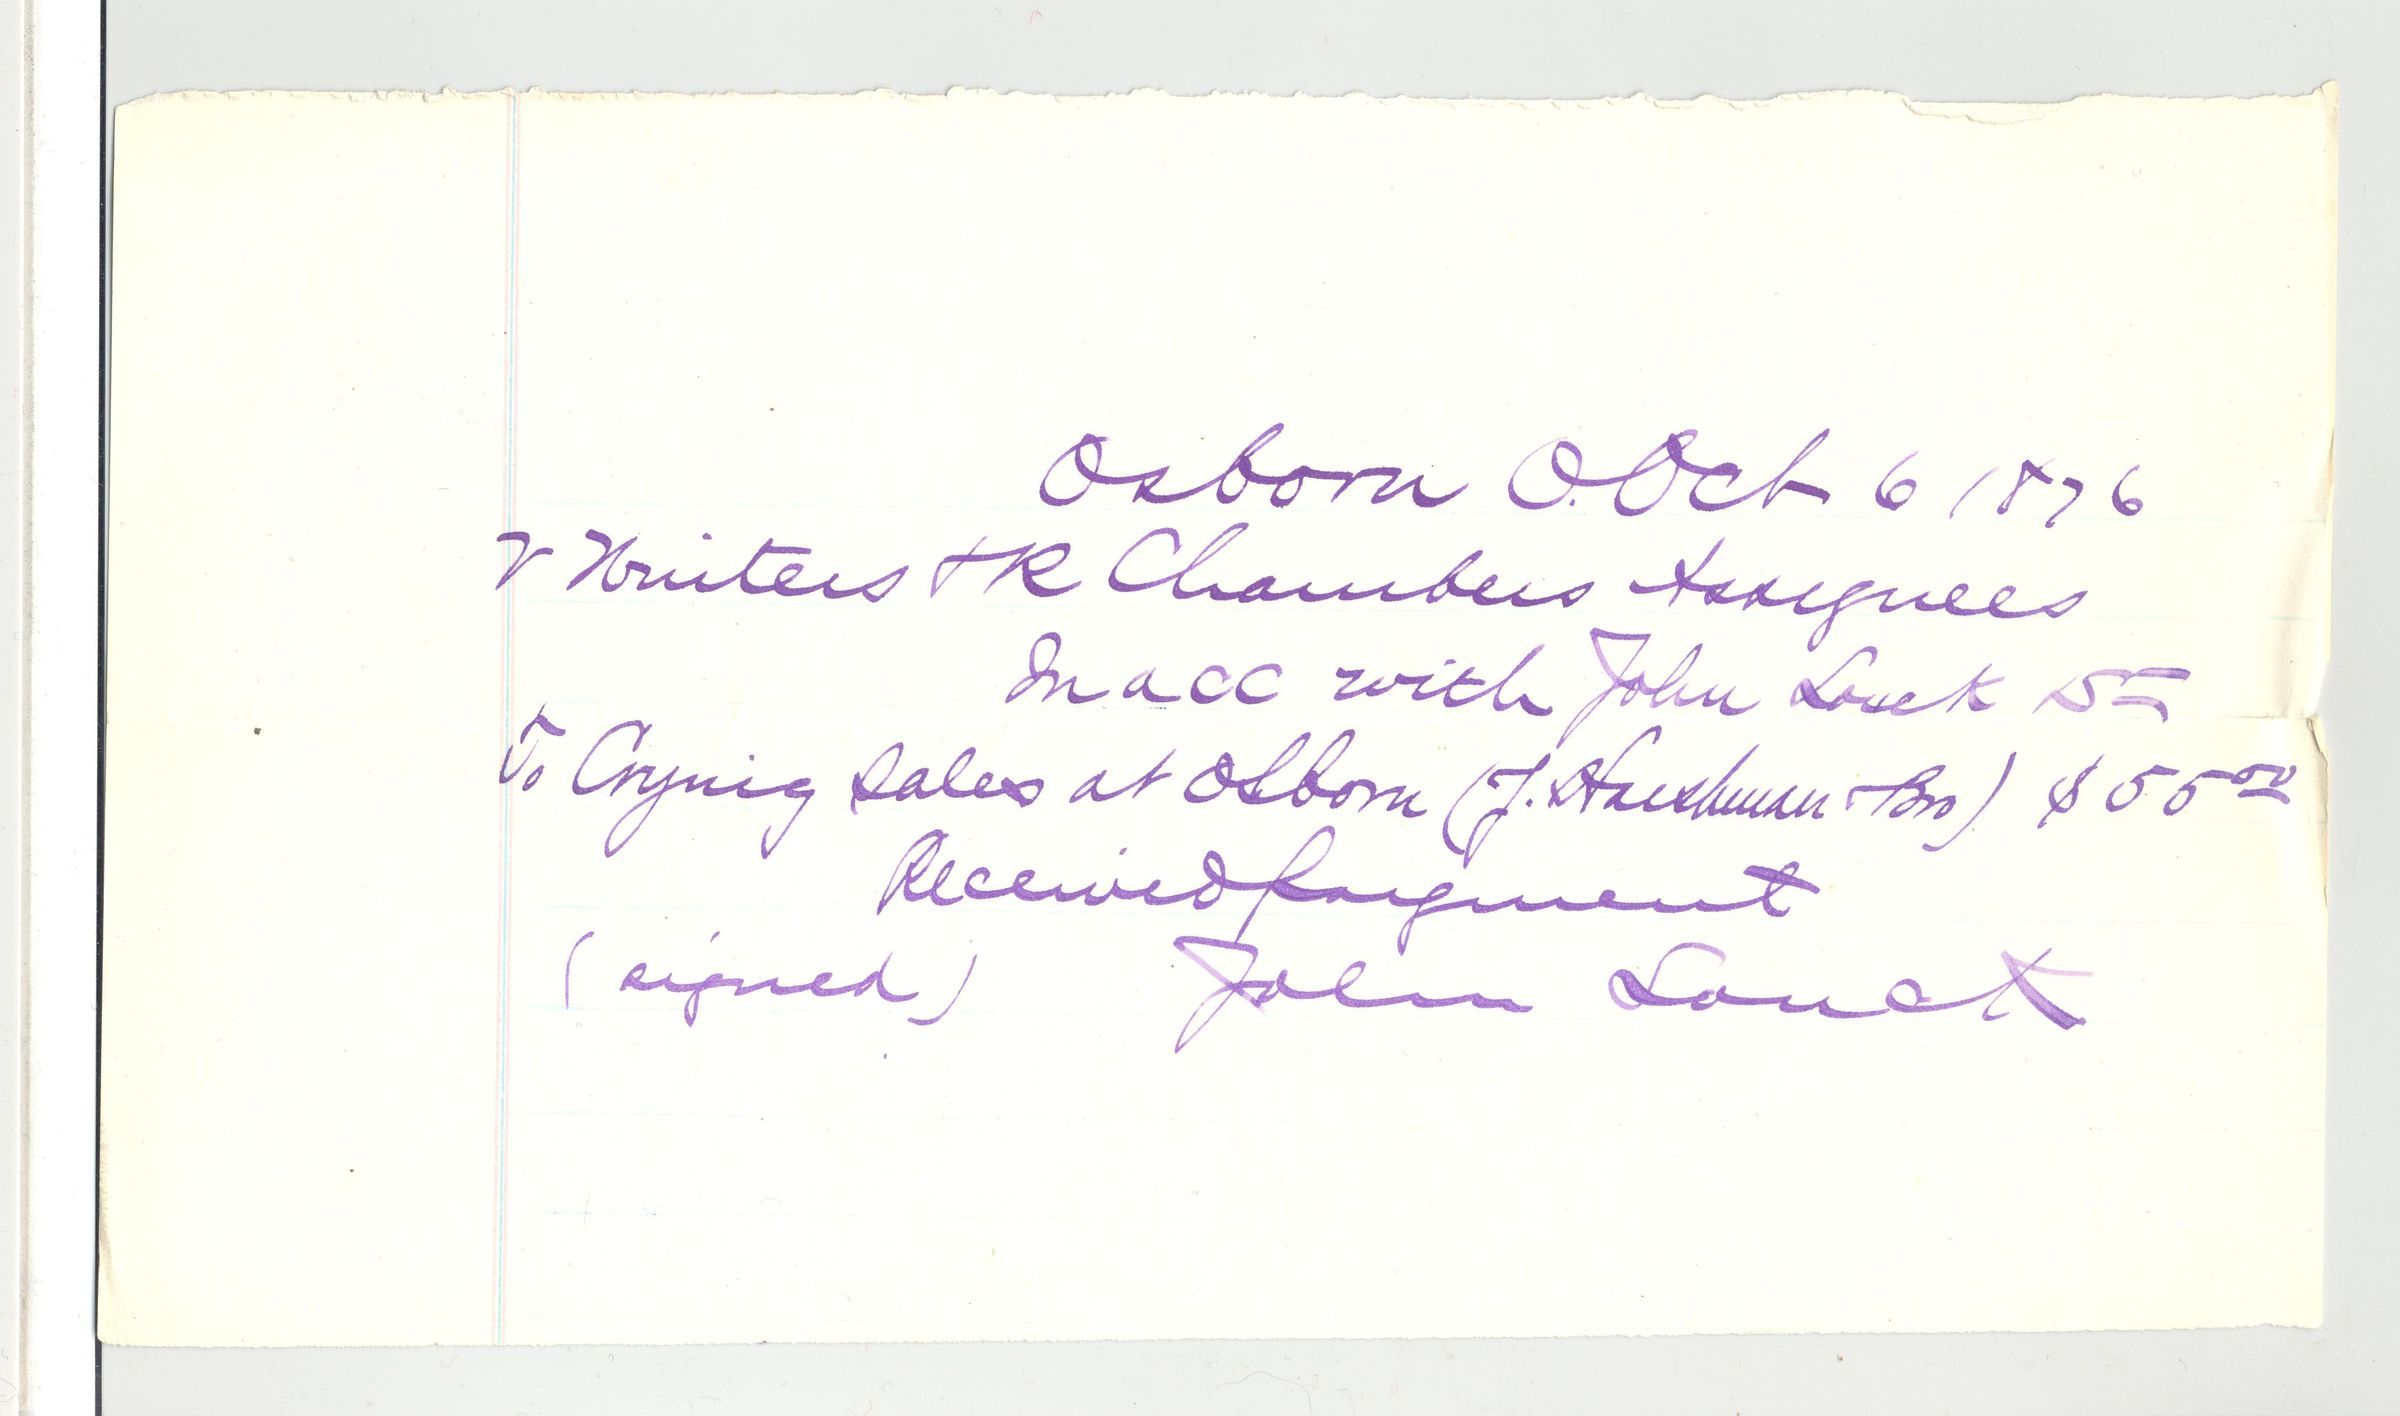 Osborn O. Oct 6 1876
V Winters + R Chambers Assignees
In acc with John Louck Dr
To Crying Sales at Osborn (J. Harshman + Bro) $55 00
Received payment
(signed) John Louck